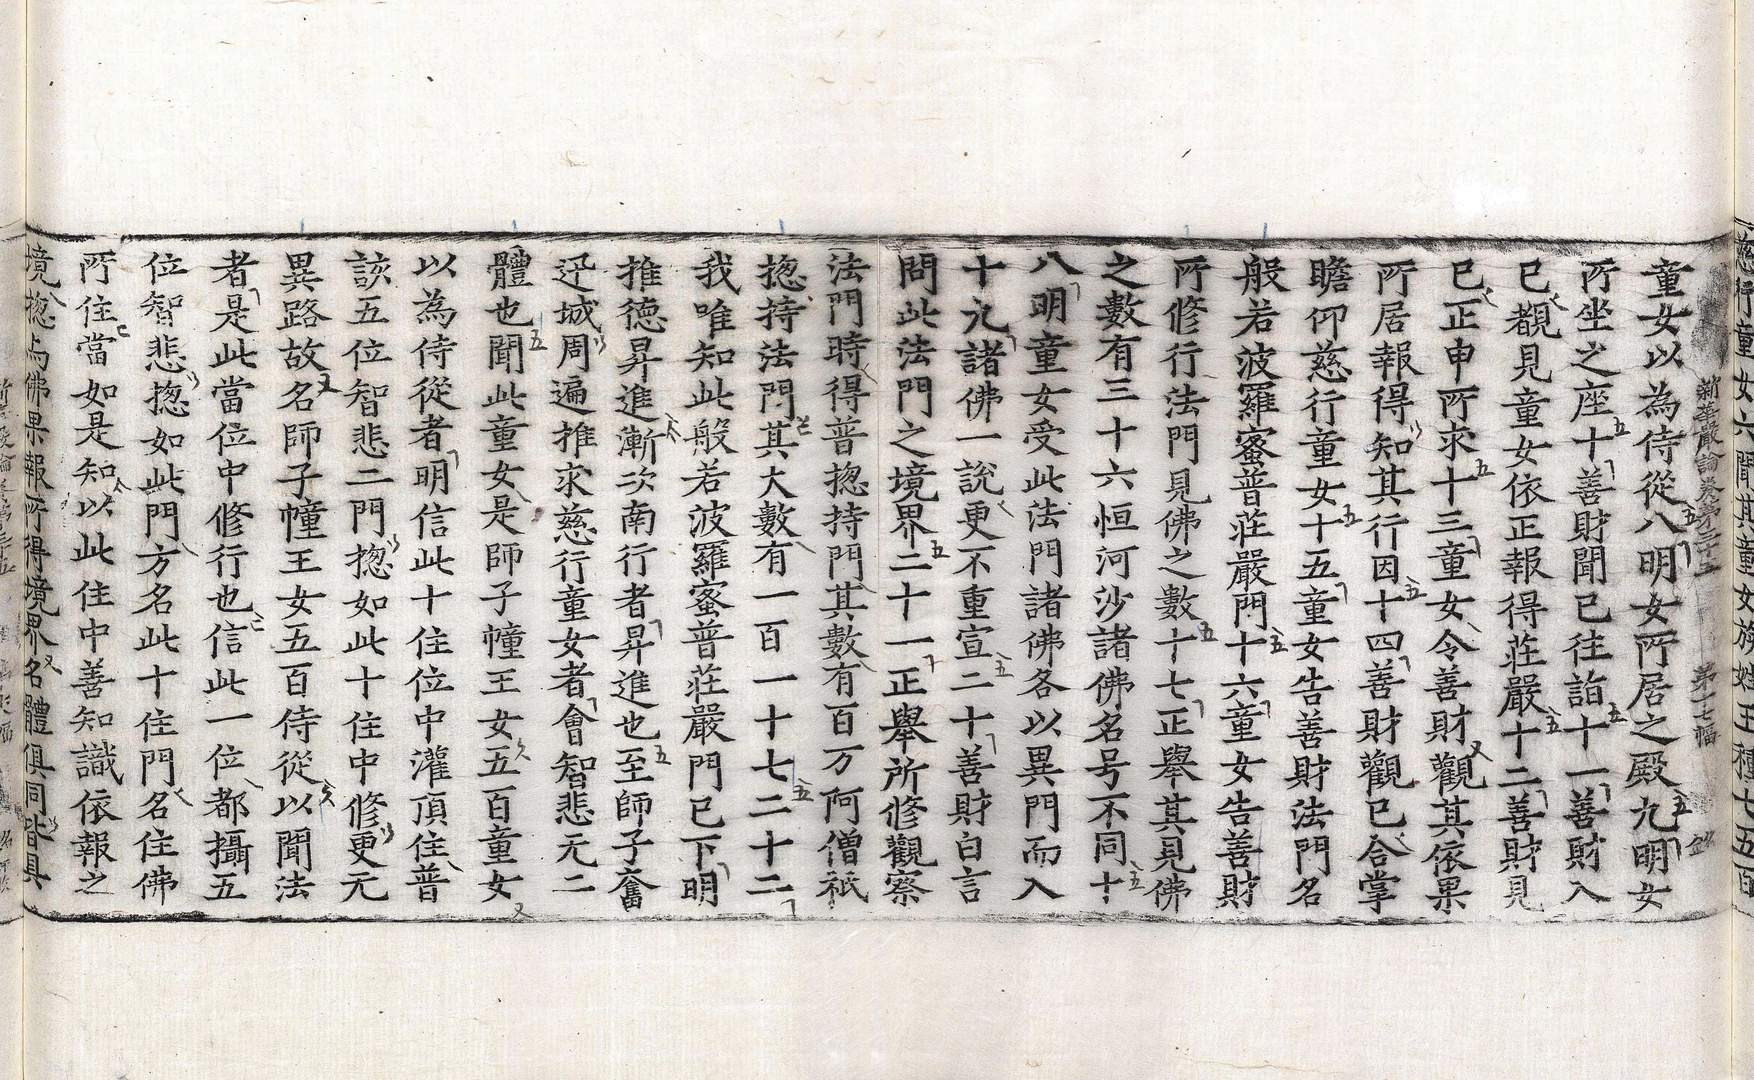 慈行童女六聞其童女族姓王種七五百
新華嚴論卷第三十五　第十七幅
童女以為侍從八明女所居之殿九明女
所坐之座十善財聞已往詣十一善財入
已覩見童女依正報得莊嚴十二善財見
已正申所求十三童女令善財觀其依果
所居報得知其行因十四善財觀已合掌
瞻仰慈行童女十五童女告善財法門名
般若波羅蜜普莊嚴門十六童女告善財
所修行法門見佛之數十七正舉其見佛
之數有三十六恒河沙諸佛名号不同十
八明童女受此法門諸佛各以異門而入
十九諸佛一說更不重宣二十善財白言
問此法門之境界二十一正舉所修觀察
法門時得普揔持門其數有百万阿僧祇
揔持法門其大數有一百一十七二十二
我唯知此般若波羅蜜普莊嚴門已下明
推德昇進漸次南行者昇進也至師子奮
迅城周遍推求慈行童女者會智悲无二
體也聞此童女是師子幢王女五百童女
以為侍從者明信此十住位中灌頂住普
該五位智悲二門揔如此十住中修更无
異路故名師子幢王女五百侍從以聞法
者是此當位中修行也信此一位都攝五
位智悲揔如此門方名此十住門名住佛
所住當如是知以此住中善知識依報之
境揔与佛果報所得境界名體俱同皆具